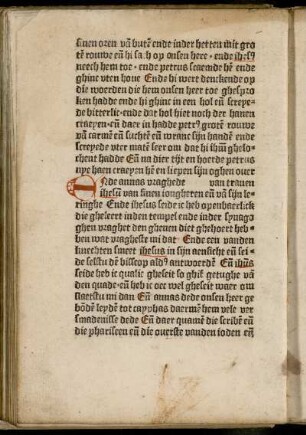 sinen oren vn̄ butē ende inder hetten mit gro
tē rouwe en̄ hi sach op onsen here · ende ihesꝰ
neech hem toe · ende petrus scaemde hē ende
ghinc vten houe Ende hi wert denckende op
die woerden die hem onsen heer toe ghespro
ken hadde ende hi ghinc in een hol en̄ screye-
de bitterlic · ende dat hol hiet noch der hanen
craeyen · en̄ daer in hadde petrꝰ grotē rouwe
vn̄ carmē en̄ suchtē en̄ wranc sijn handē ende
screyede vter matē seer om dat hi ihm̄ ghelo-
chent hadde En̄ na dier tijt en hoerde petrus
nye haen craeyen hē en liepen sijn oghen ouer
Ende annas vraghede van trauen
ihesum van sinen iongherē en̄ vā sijn le-
ringhe Ende ihesus seide ic heb openbaerlick
die gheleert inden tempel ende inder synago
ghen vraghet den gheuen diet ghehoert heb-
ben wat vraghestu mi dat Ende een vanden
knechten smeet ihesus in sijn aensicht en̄ sei-
de selstu dē bisscop aldꝰ antwoerdē En̄ ihūs
seide heb ic qualic gheseit so ghif getughe vā
den quade · en̄ heb ic oec wel gheseit waer om
slaetstu mi dan En̄ annas dede onsen heer ge
bōdē leydē tot cayphas daermē hem vele ver
smadenisse dede En̄ daer quamē die scribē en̄
die phariseen en̄ die ouerste vanden ioden en̄